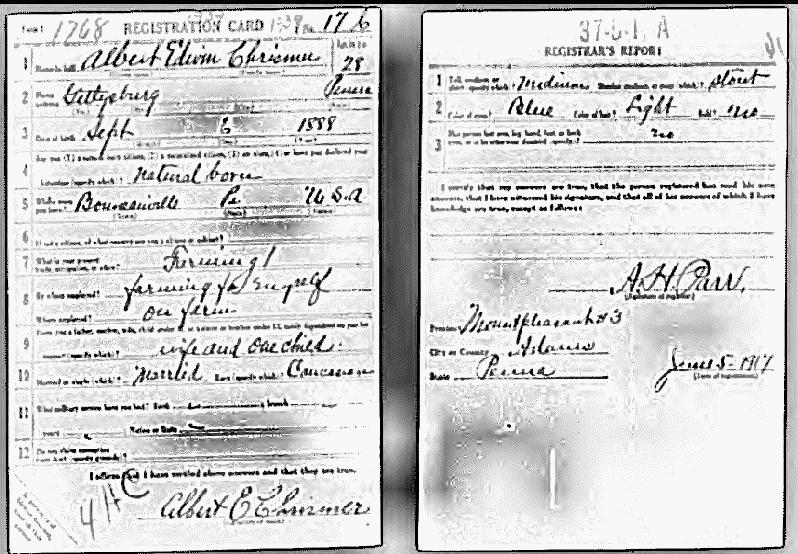 Form 1 1768 REGISTRATION CARD No. 176
1 Name in full Albert Edwin Chrismer Age in yrs
28
2 Home address Gettysburg Penna
3 Date of birth Sept 6 1888
Are you (1) a natural born citizen, (2) a naturalized citizen, (3) an alien, (4) or have you declared your
4 intention (specify which)? Natural born
5 Where were you born? Bonneauville Pa U S A
6 If not a citizen, of what country are you a citizen or subject?
7 What is your present trade, occupation, or office? Farming
8 By whom employed? farming for myself
Where employed? on farm
9 wife and one child
10 Married or single (which)? Married Race (specify which)? Caucasian
11 What military service have you had? Rank branch
years Nation or State
12 Do you claim exemption from draft (specify grounds)?
I affirm that I have verified above answers and that they are true.
Albert E Chrismer
37-6-1. A
REGISTRAR'S REPORT
1 Tall, medium, or short (specify which)? Medium Slender, medium, or stout (which)? Stout
2 Color of eyes? Blue Color of hair? Light Bald? No
3 Has person lost arm, leg, hand, foot, or both eyes, or is he otherwise disabled (specify)? No
I certify that my answers are true, that the person registered has read his own
answers, that I have witnessed his signature, and that all of his answers of which I have
knowledge are true, except as follows:
A. H. Parr.
(Signature of registrar)
Precinct Mountpleasant #3
City or County Adams
State Penna June 5-1917
(Date of registration)